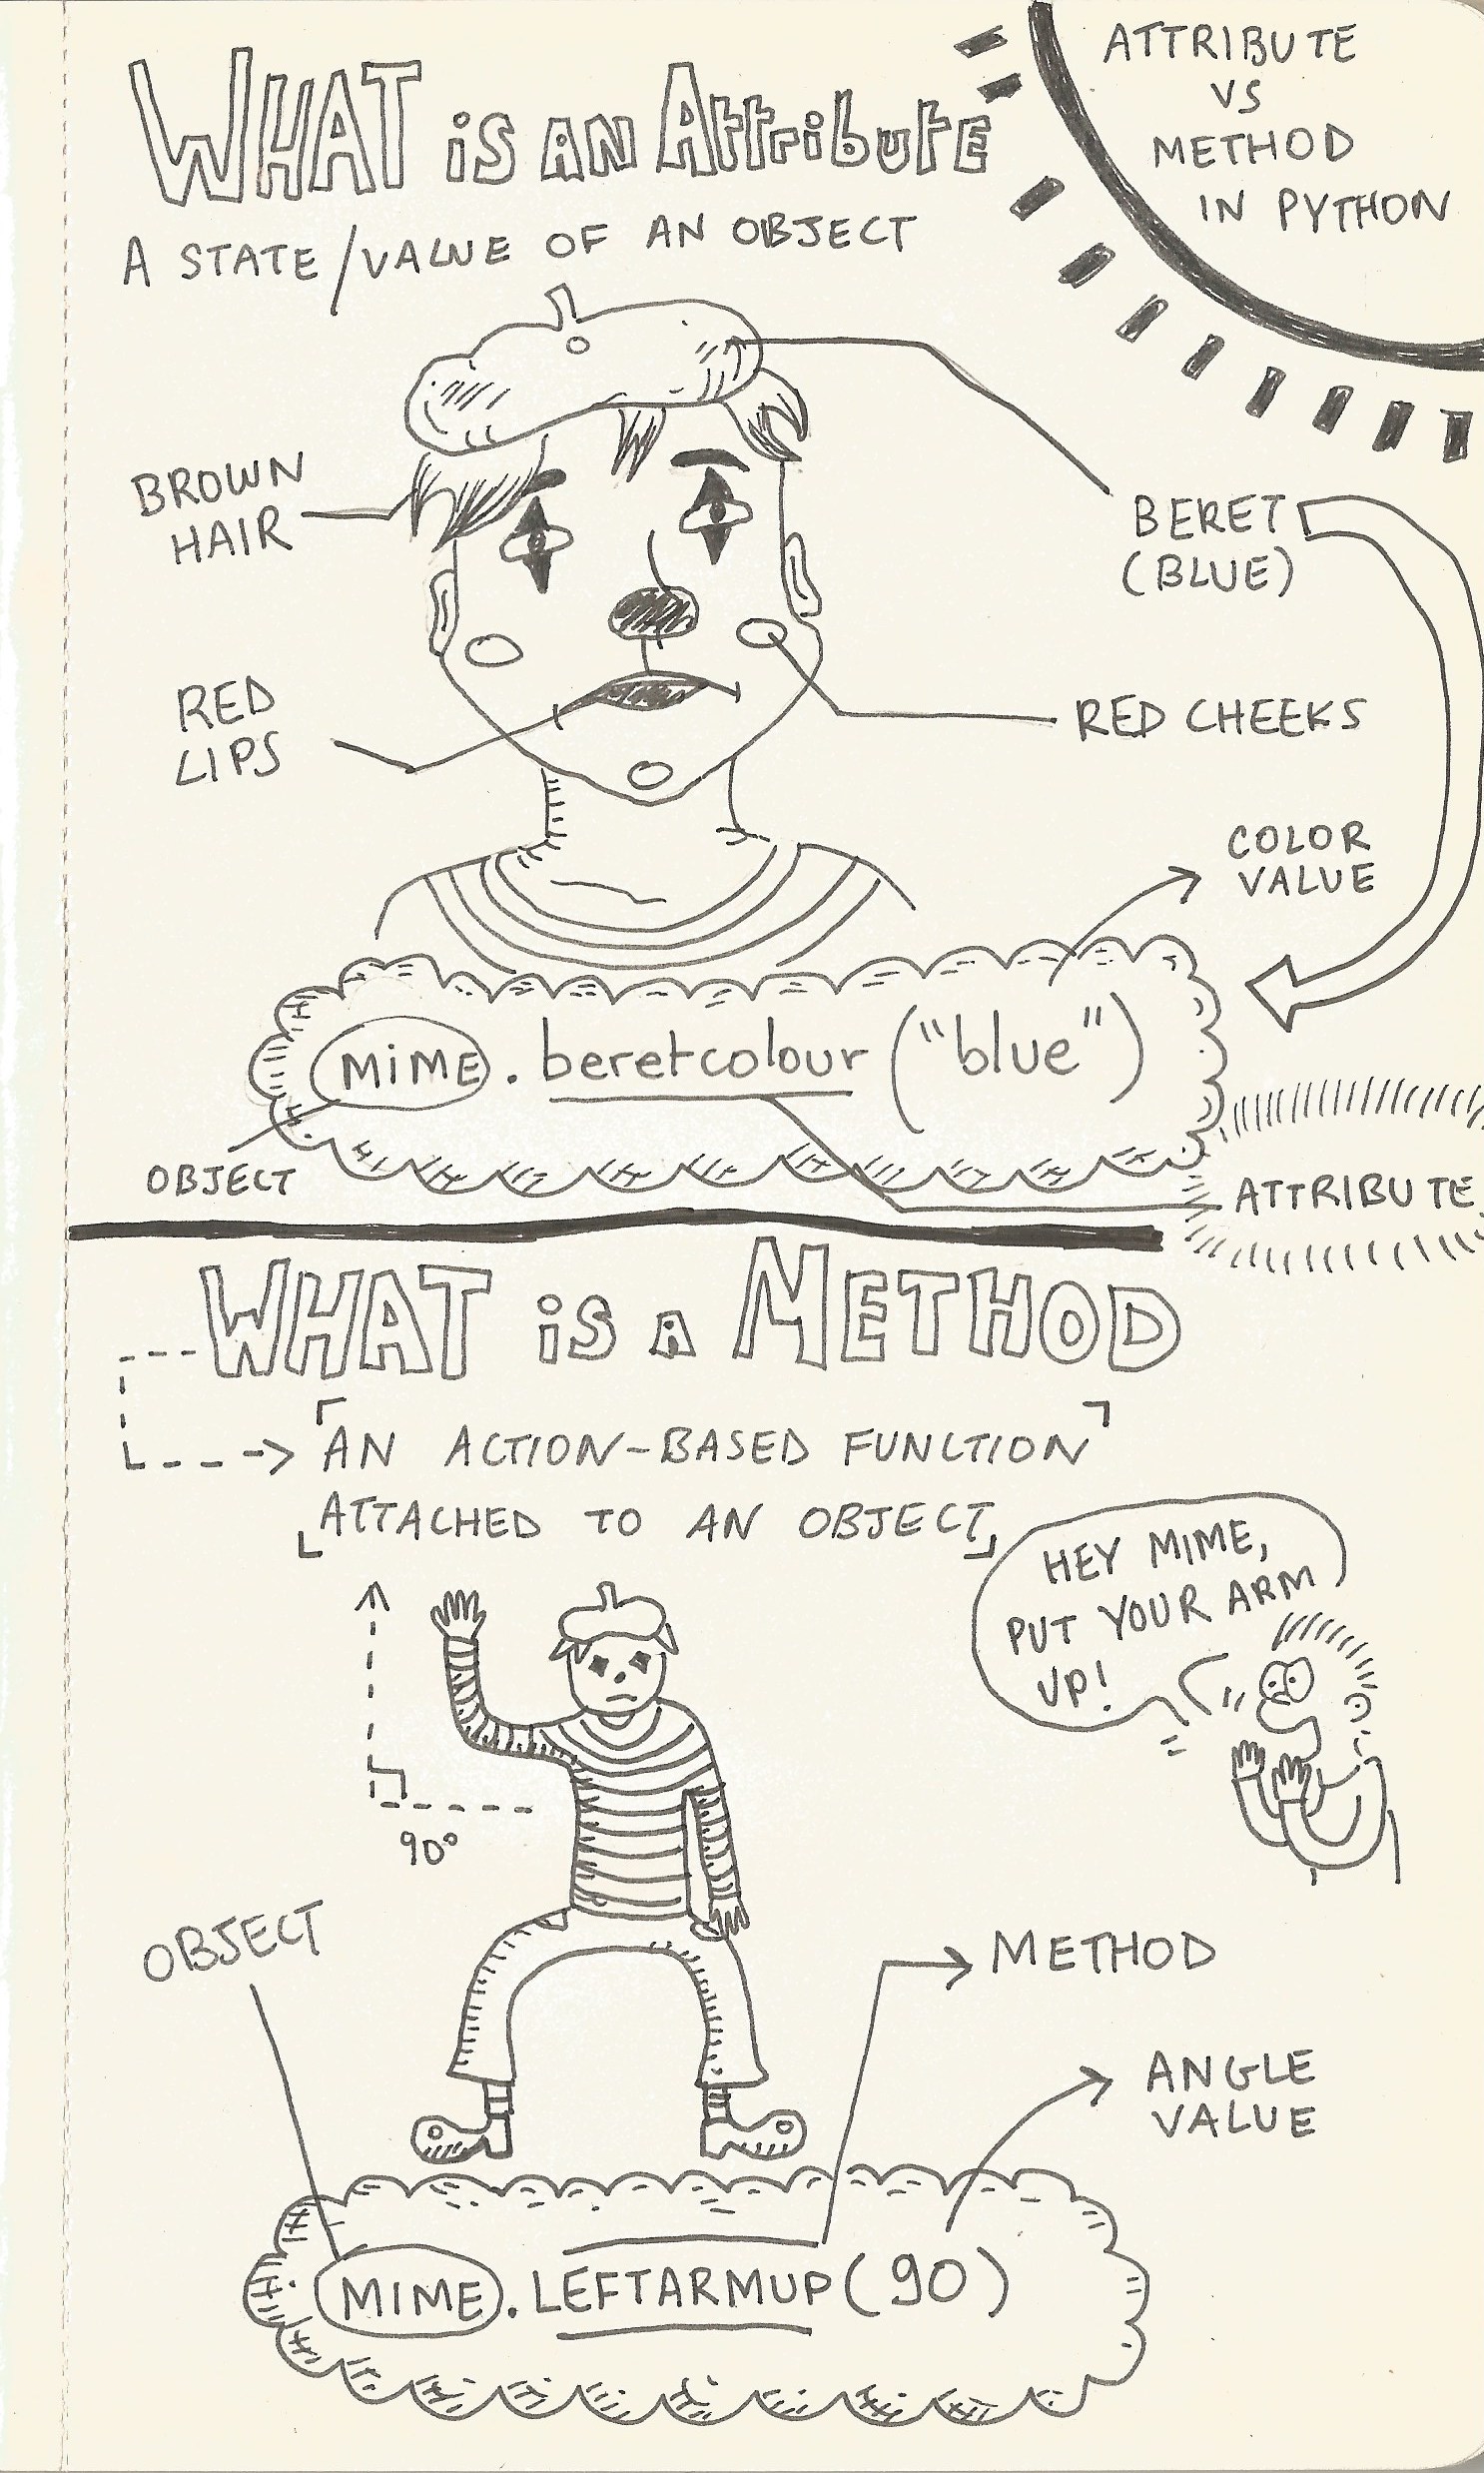 ATTRIBUTE
VS
METHOD
IN PYTHON
WHAT is AN Attribute
A STATE/VALUE OF AN OBJECT
BROWN
HAIR
BERET
(BLUE)
RED
LIPS
RED CHEEKS
COLOR
VALUE
MiME.beretcolour("blue")
OBJECT
ATTRIBUTE
WHAT is A METHOD
AN ACTION-BASED FUNCTION
ATTACHED TO AN OBJECT
HEY MIME,
PUT YOUR ARM
UP!
90°
OBJECT
METHOD
ANGLE
VALUE
MIME.LEFTARMUP(90)